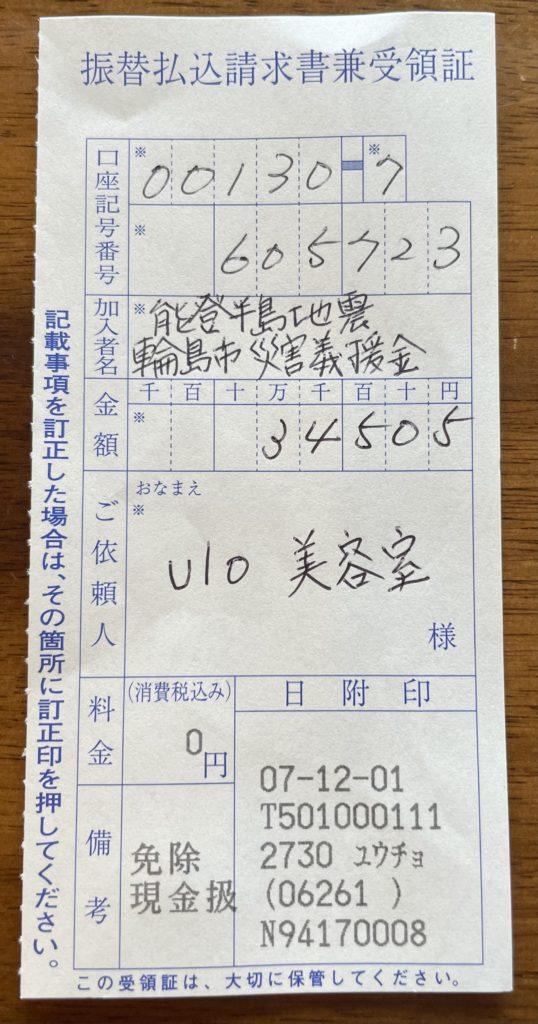 振替払込請求書兼受領証
口座記号番号
※00130-※7
※605723
加入者名
※能登半島地震
輪島市災害義援金
金額
千百十万千百十円
※34505
ご依頼人
おなまえ
※
ulo 美容室
様
料金
(消費税込み)
0円
日附印
07-12-01
T501000111
2730 ユウチョ
(06261 )
N94170008
備考
免除
現金扱
記載事項を訂正した場合は、その箇所に訂正印を押してください。
この受領証は、大切に保管してください。